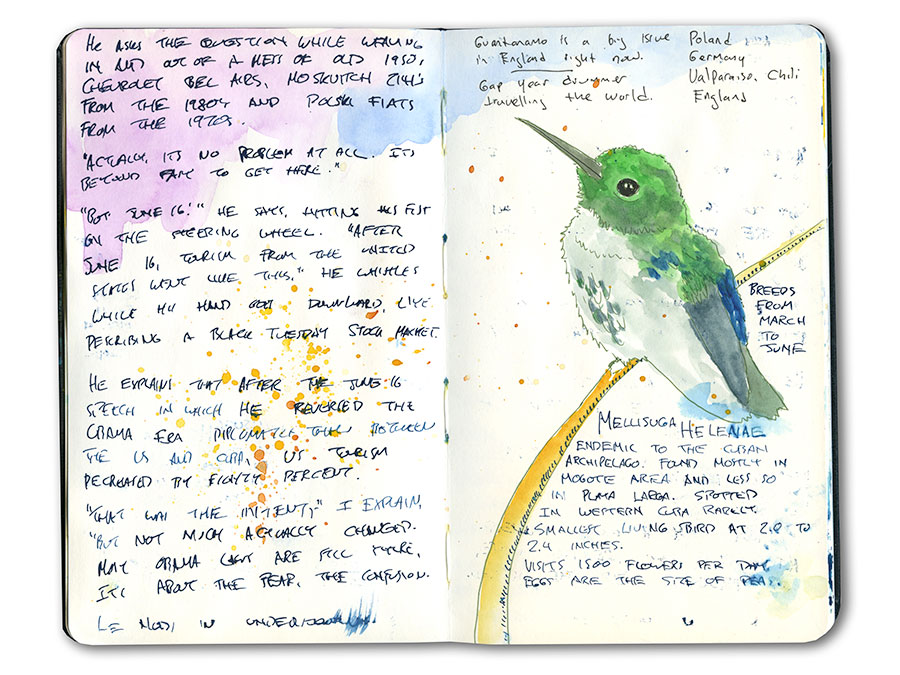 He asks the question while weaving
in and out of a mess of old 1950s
Chevrolet Bel Airs, Moskvitch 2141's
from the 1980s and Polski Fiats
from the 1970s.
"Actually, it's no problem at all. It's
beyond easy to get here."
"But June 16!" he says, hitting his fist
on the steering wheel. "After
June 16, tourism from the United
States went like this." He whistles
while his hand goes downward, like
describing a Black Tuesday stock market.
He explains that after the June 16
speech in which he reversed the
Obama era diplomatic between
the US and Cuba, US tourism
decreased by eighty percent.
"That was the intent," I explain,
"But not much actually changed.
Most Obama are still there.
It's about the fear, the confusion.
in
Guantanamo is a big issue
in England right now.
Gap year
travelling the world.
Poland
Germany
Valparaiso, Chili
England
BREEDS
FROM
MARCH
TO
JUNE
MELLISUGA HELENAE
ENDEMIC TO THE CUBAN
ARCHIPELAGO. FOUND MOSTLY IN
MOGOTE AREA AND LESS SO
IN PLAYA LARGA. SPOTTED
IN WESTERN CUBA RARELY.
SMALLEST LIVING BIRD AT 2.0 TO
2.4 INCHES.
VISITS 1500 FLOWERS PER DAY.
EGGS ARE THE SIZE OF PEAS.